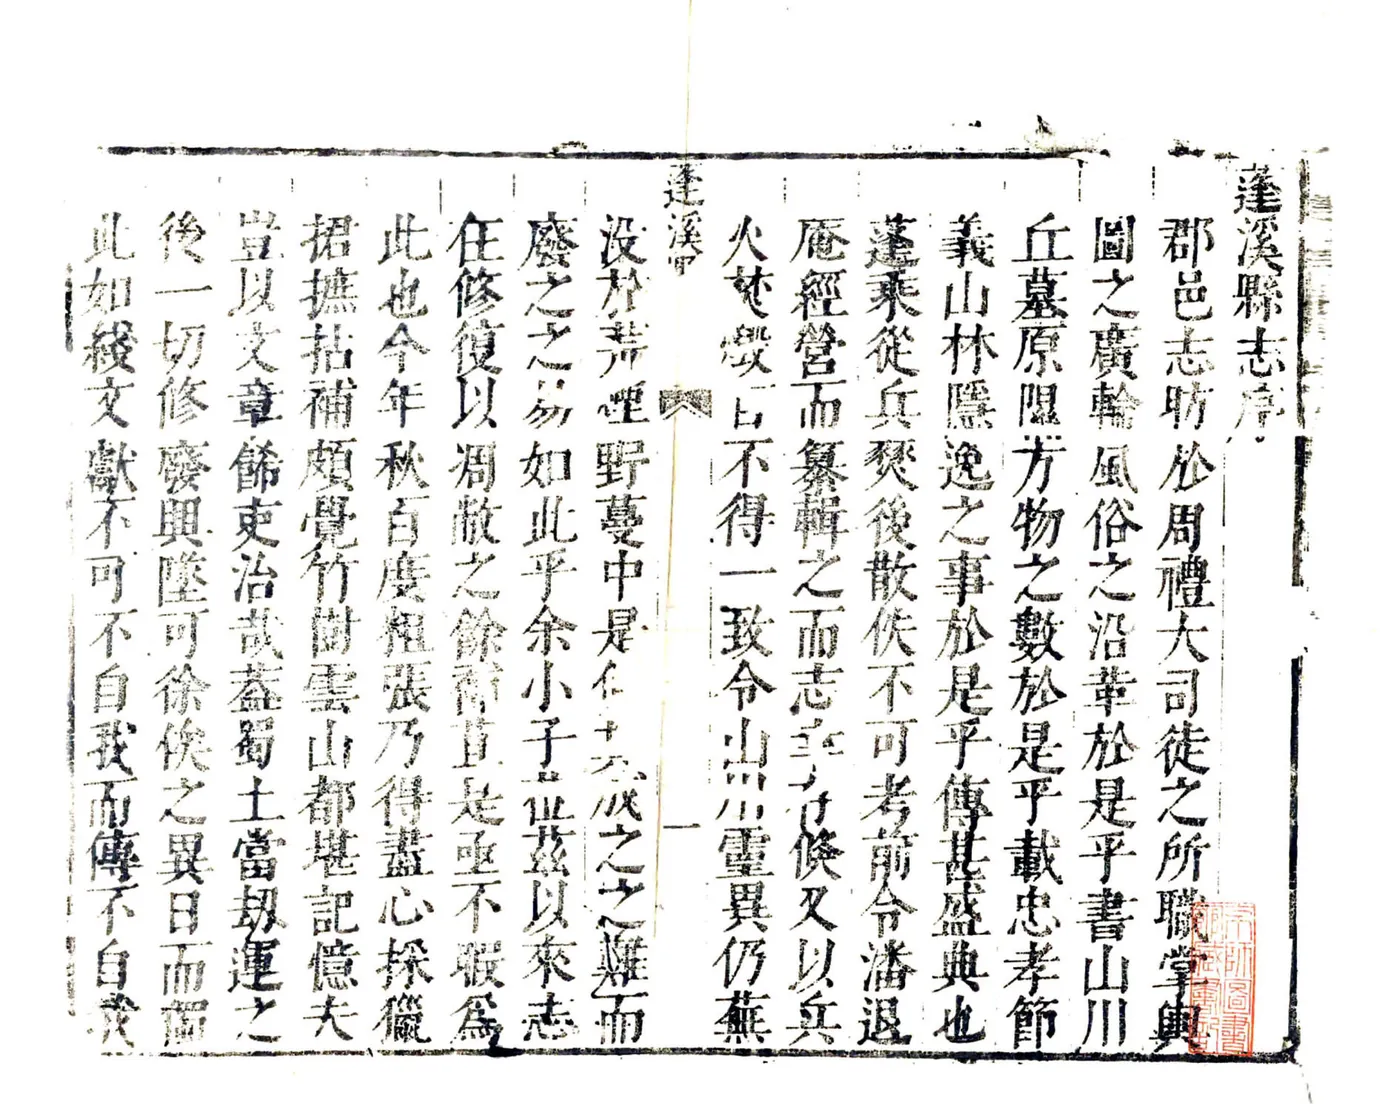 蓬溪縣志序
郡邑志昉於周禮大司徒之所職掌輿
圖之廣輪風俗之沿革於是乎書山川
丘墓原隰方物之數於是乎載忠孝節
義山林隱逸之事於是乎傳甚盛典也
蓬乘從兵燹後散佚不可考前令潘退
庵經營而纂輯之而志 倏又以兵
火焚燬 不得一致令山川靈異仍蕪
蓬溪
一
沒於荒煙野蔓中是 成之之難而
廢之之易如此乎余小子 茲以來志
在修復以凋敝之餘補苴是亟不暇為
此也今年秋百度粗張乃得盡心採獵
捃摭拈補頗覺竹樹雲山都堪記憶夫
豈以文章餙吏治哉葢蜀土當刼運之
後一切修廢興墜可徐俟之異日而獨
此如綫文獻不可不自我而傳不自我